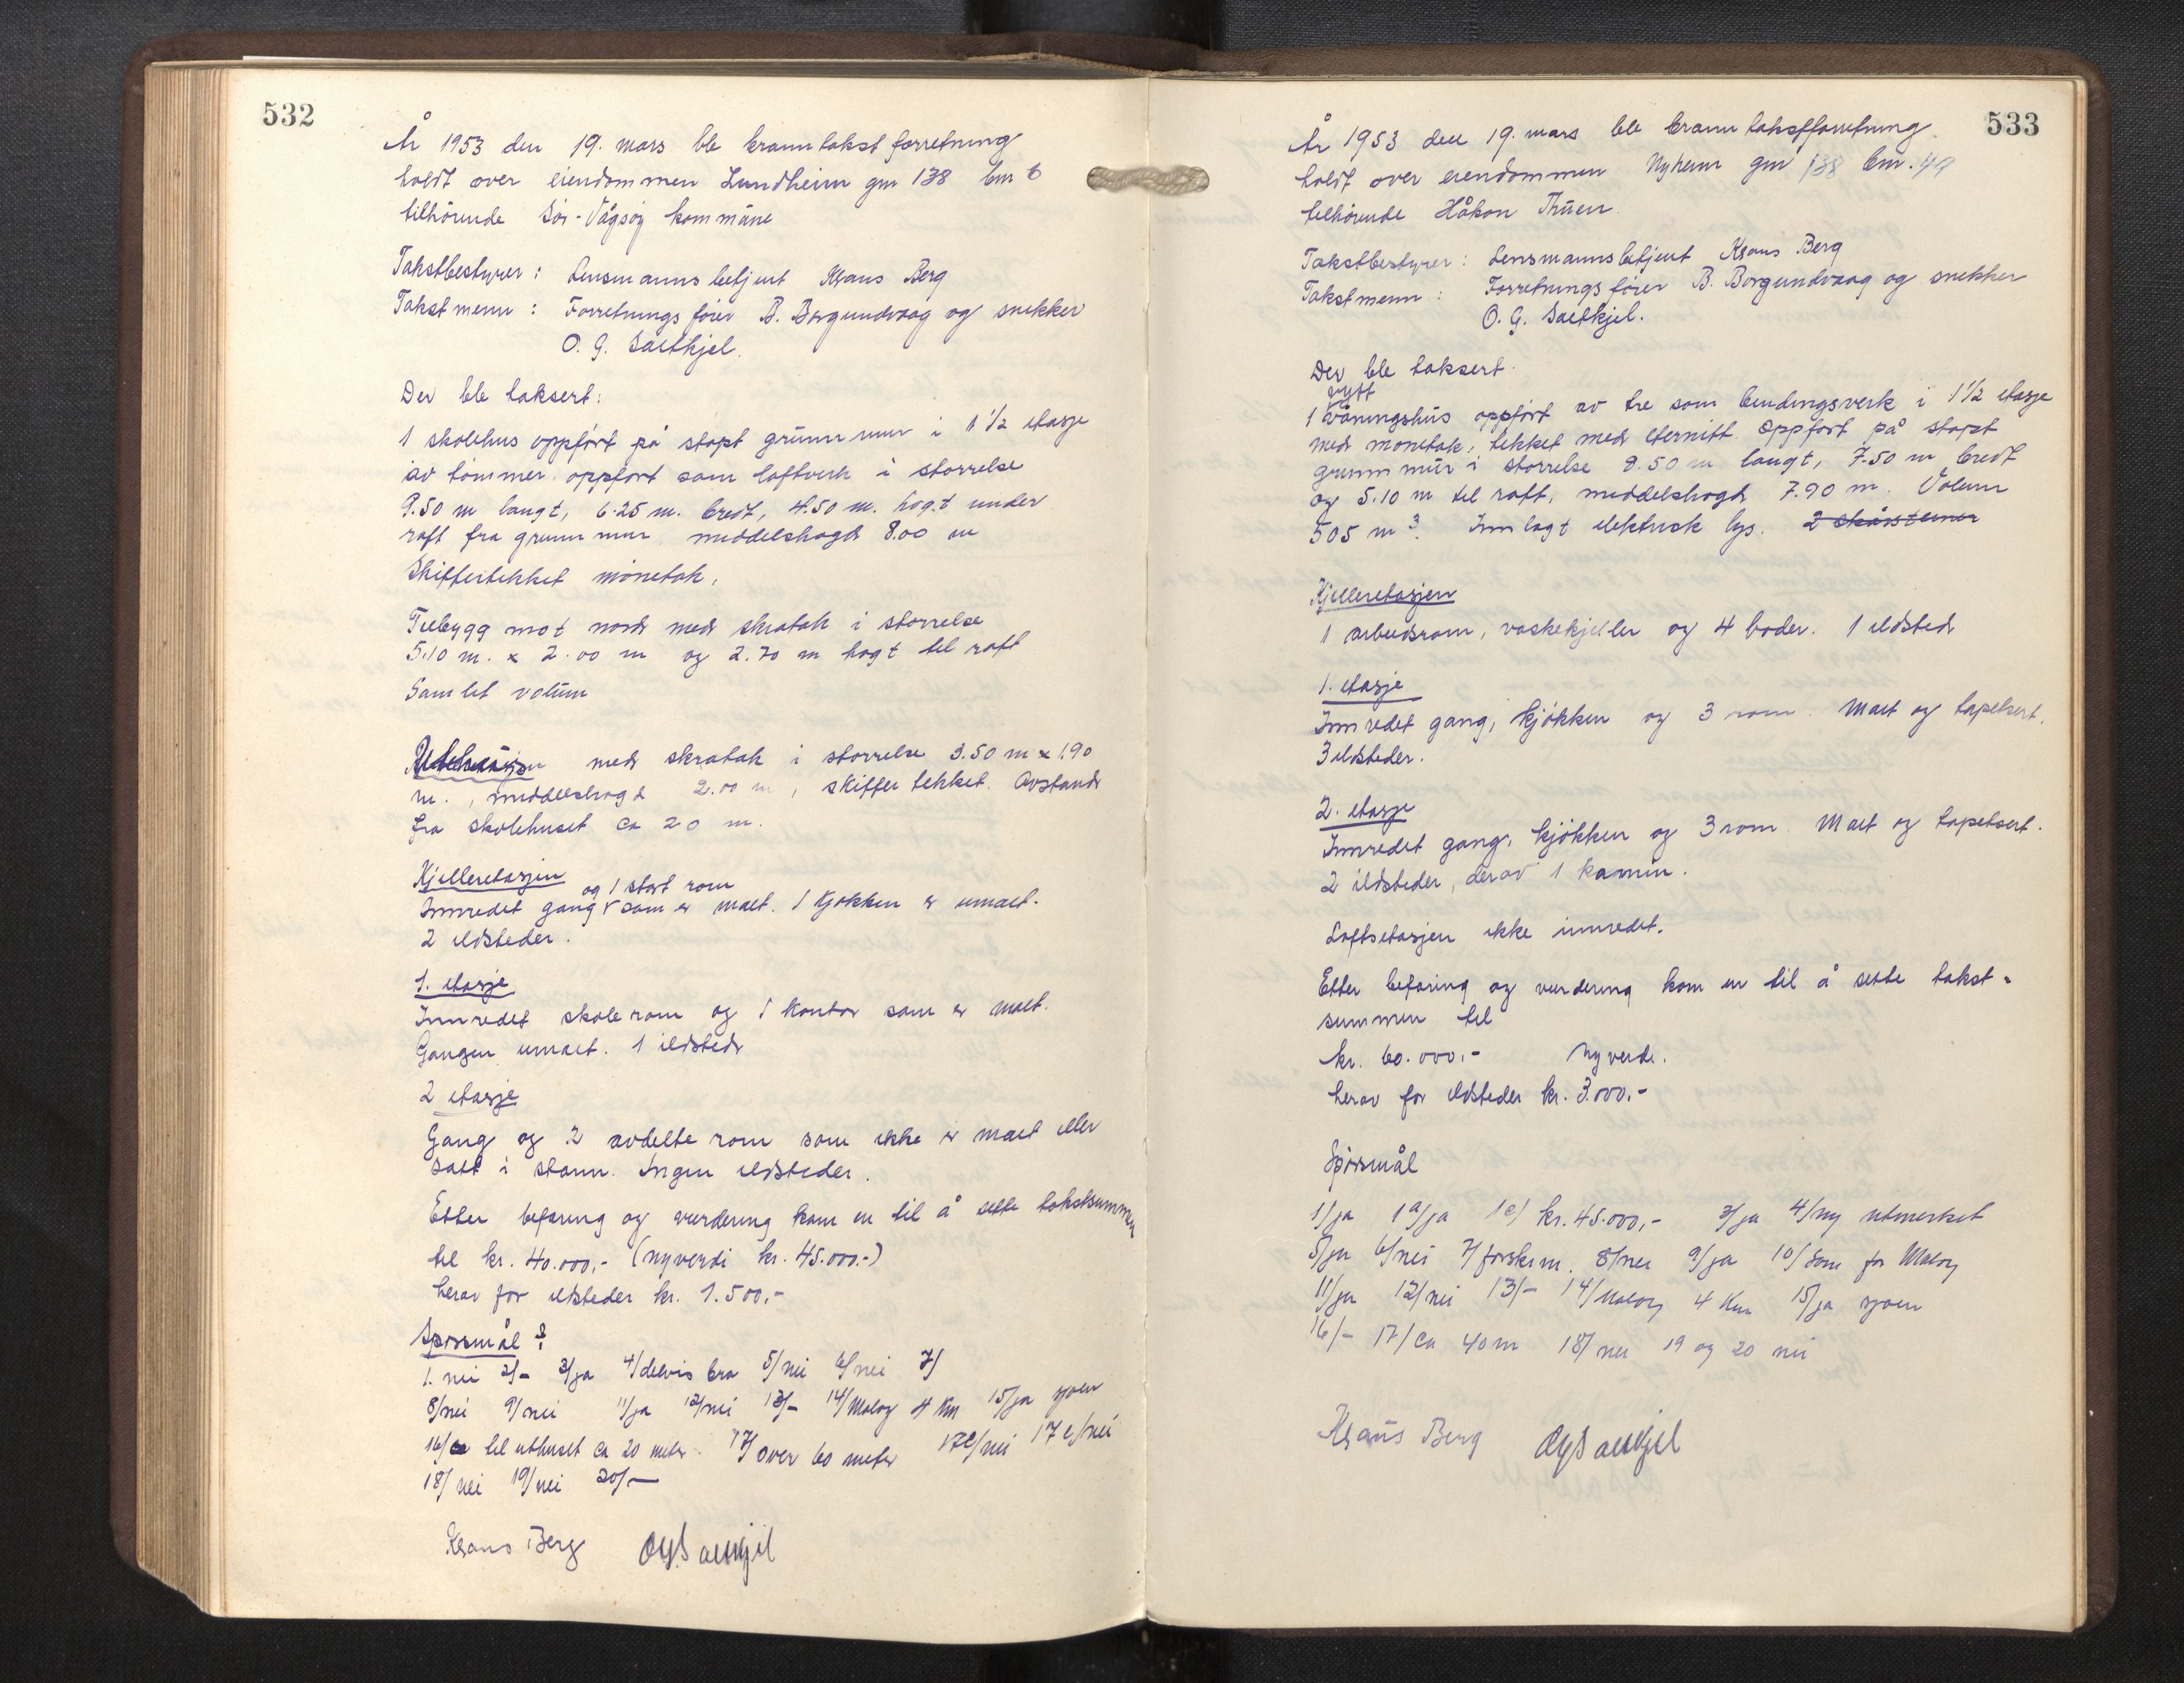 532
År 1953 den 19. mars ble branntakst forretning
holdt over eiendommen Lundheim gnr 138 bnr 6
tilhörende Sör-Vågsöy kommune
Takstbestyrer: Lensmannsbetjent Klaus Berg
Takstmenn: Forretningsförer B. Borgundvaag og snekker
O. G. Saltkjel.
Der ble taksert:
1 skolehus oppfört på stöpt grunnmur i 1 1/2 etasje
av tömmer oppfört som laftverk i störrelse
9.50 m langt, 6.25 m. bredt, 4.50 m. högt under
raft fra grunnmur middelshögd 8.00 m
Skiffertekket mönetak,
Tilbygg mot nord med skråtak i störrelse
5.10 m. x 2.00 m og 2.70 m högt til raft
Samlet volum
med skråtak i störrelse 3.50 m x 1.90
m., middelshögd 2.00 m, skiffertekket. Avstand
fra skolehuset ca 20 m.
Kjelleretasjen
og 1 stort rom
Innredet gang som er malt. 1 kjökken er umalt.
2 ildsteder.
1. etasje
Innredet skolerom og 1 kontor som er malt.
Gangen umalt. 1 ildsted
2 etasje
Gang og 2 avdelte rom som ikke er malt eller
satt i stann. Ingen ildsteder.
Etter befaring og vurdering kom en til å sette takstsummen
til kr. 40.000,- (nyverdi kr. 45.000.-)
herav for ildsteder kr. 1.500,-
Spörsmål:
1. nei 2/- 3/ja 4/delvis bra 5/nei 6/nei 7/
8/nei 9/nei 11/ja 12/nei 13/- 14/Måloy 4 km 15/ja sjoen
16/ til uthuset ca 20 meter 17/over 60 meter 17c/nei 17e/nei
18/nei 19/nei 20/-
Klaus Berg OGSaltkjel
533
År 1953 den 19. mars ble branntakstforretning
holdt over eiendommen Nyheim gnr 138 bnr. 49
tilhörende Håkon Thuen.
Takstbestyrer: Lensmannsbetjent Klaus Berg
Takstmenn: Forretningsförer B. Borgundvaag og snekker
O. G. Saltkjel.
Der ble taksert.
nytt
1 våningshus oppfört av tre som bindingsverk i 1 1/2 etasje
med mönetak, tekket med eternitt. Oppfört på stöpt
grunnmur i störrelse 8.50 m langt, 7.50 m bredt
og 5.10 m til raft, middelshögd 7.90 m. Volum
505 m3. Innlagt elektrisk lys. 2 skårsteiner
Kjelleretasjen
1 arbeidsrom, vaskekjeller og 4 boder. 1 ildsted
1. etasje
Innredet gang, kjökken og 3 rom. Malt og tapetsert.
3 ildsteder.
2. etasje
Innredet gang, kjökken og 3 rom. Malt og tapetsert.
2 ildsteder, derav 1 kamin.
Loftsetasjen ikke innredet.
Etter befaring og vurdering kom en til å sette takst-
summen til
kr. 60.000.- nyverdi.
herav for ildsteder kr. 3.000.-
Spörsmål
1/ja 1a/ja 1c/ kr. 45.000,- 3/ja 4/ny utmerket
5/ja 6/nei 7/forskr.m. 8/nei 9/ja 10/Som for Måloy
11/ja 12/nei 13/- 14/Måloy 4 km 15/ja sjoen
16/- 17/ca 40 m 18/nei 19 og 20 nei
Klaus Berg OGSaltkjel